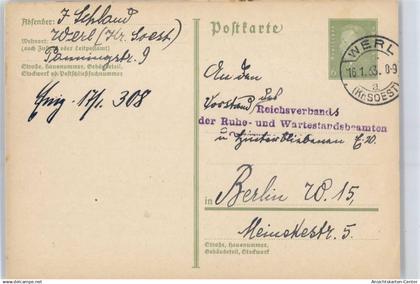 Absender: J. Schland
Werl (Kr. Soest)
Wohnort:
(auch Zustell- oder Leitpostamt)
9
Straße, Hausnummer, Gebäudeteil,
Stockwerk od. Postschließfachnummer
17/1. 308
Postkarte
WERL
16.1.33. 8-9
a
(Kr. SOEST)
An den
Vorstand des
Reichsverbands
der Ruhe- und Wartestandsbeamten
u Hinterbliebenen E.V.
in Berlin W. 15,
Meinekestr. 5.
Straße, Hausnummer,
Gebäudeteil, Stockwerk
www.ansichtskarten-center.de